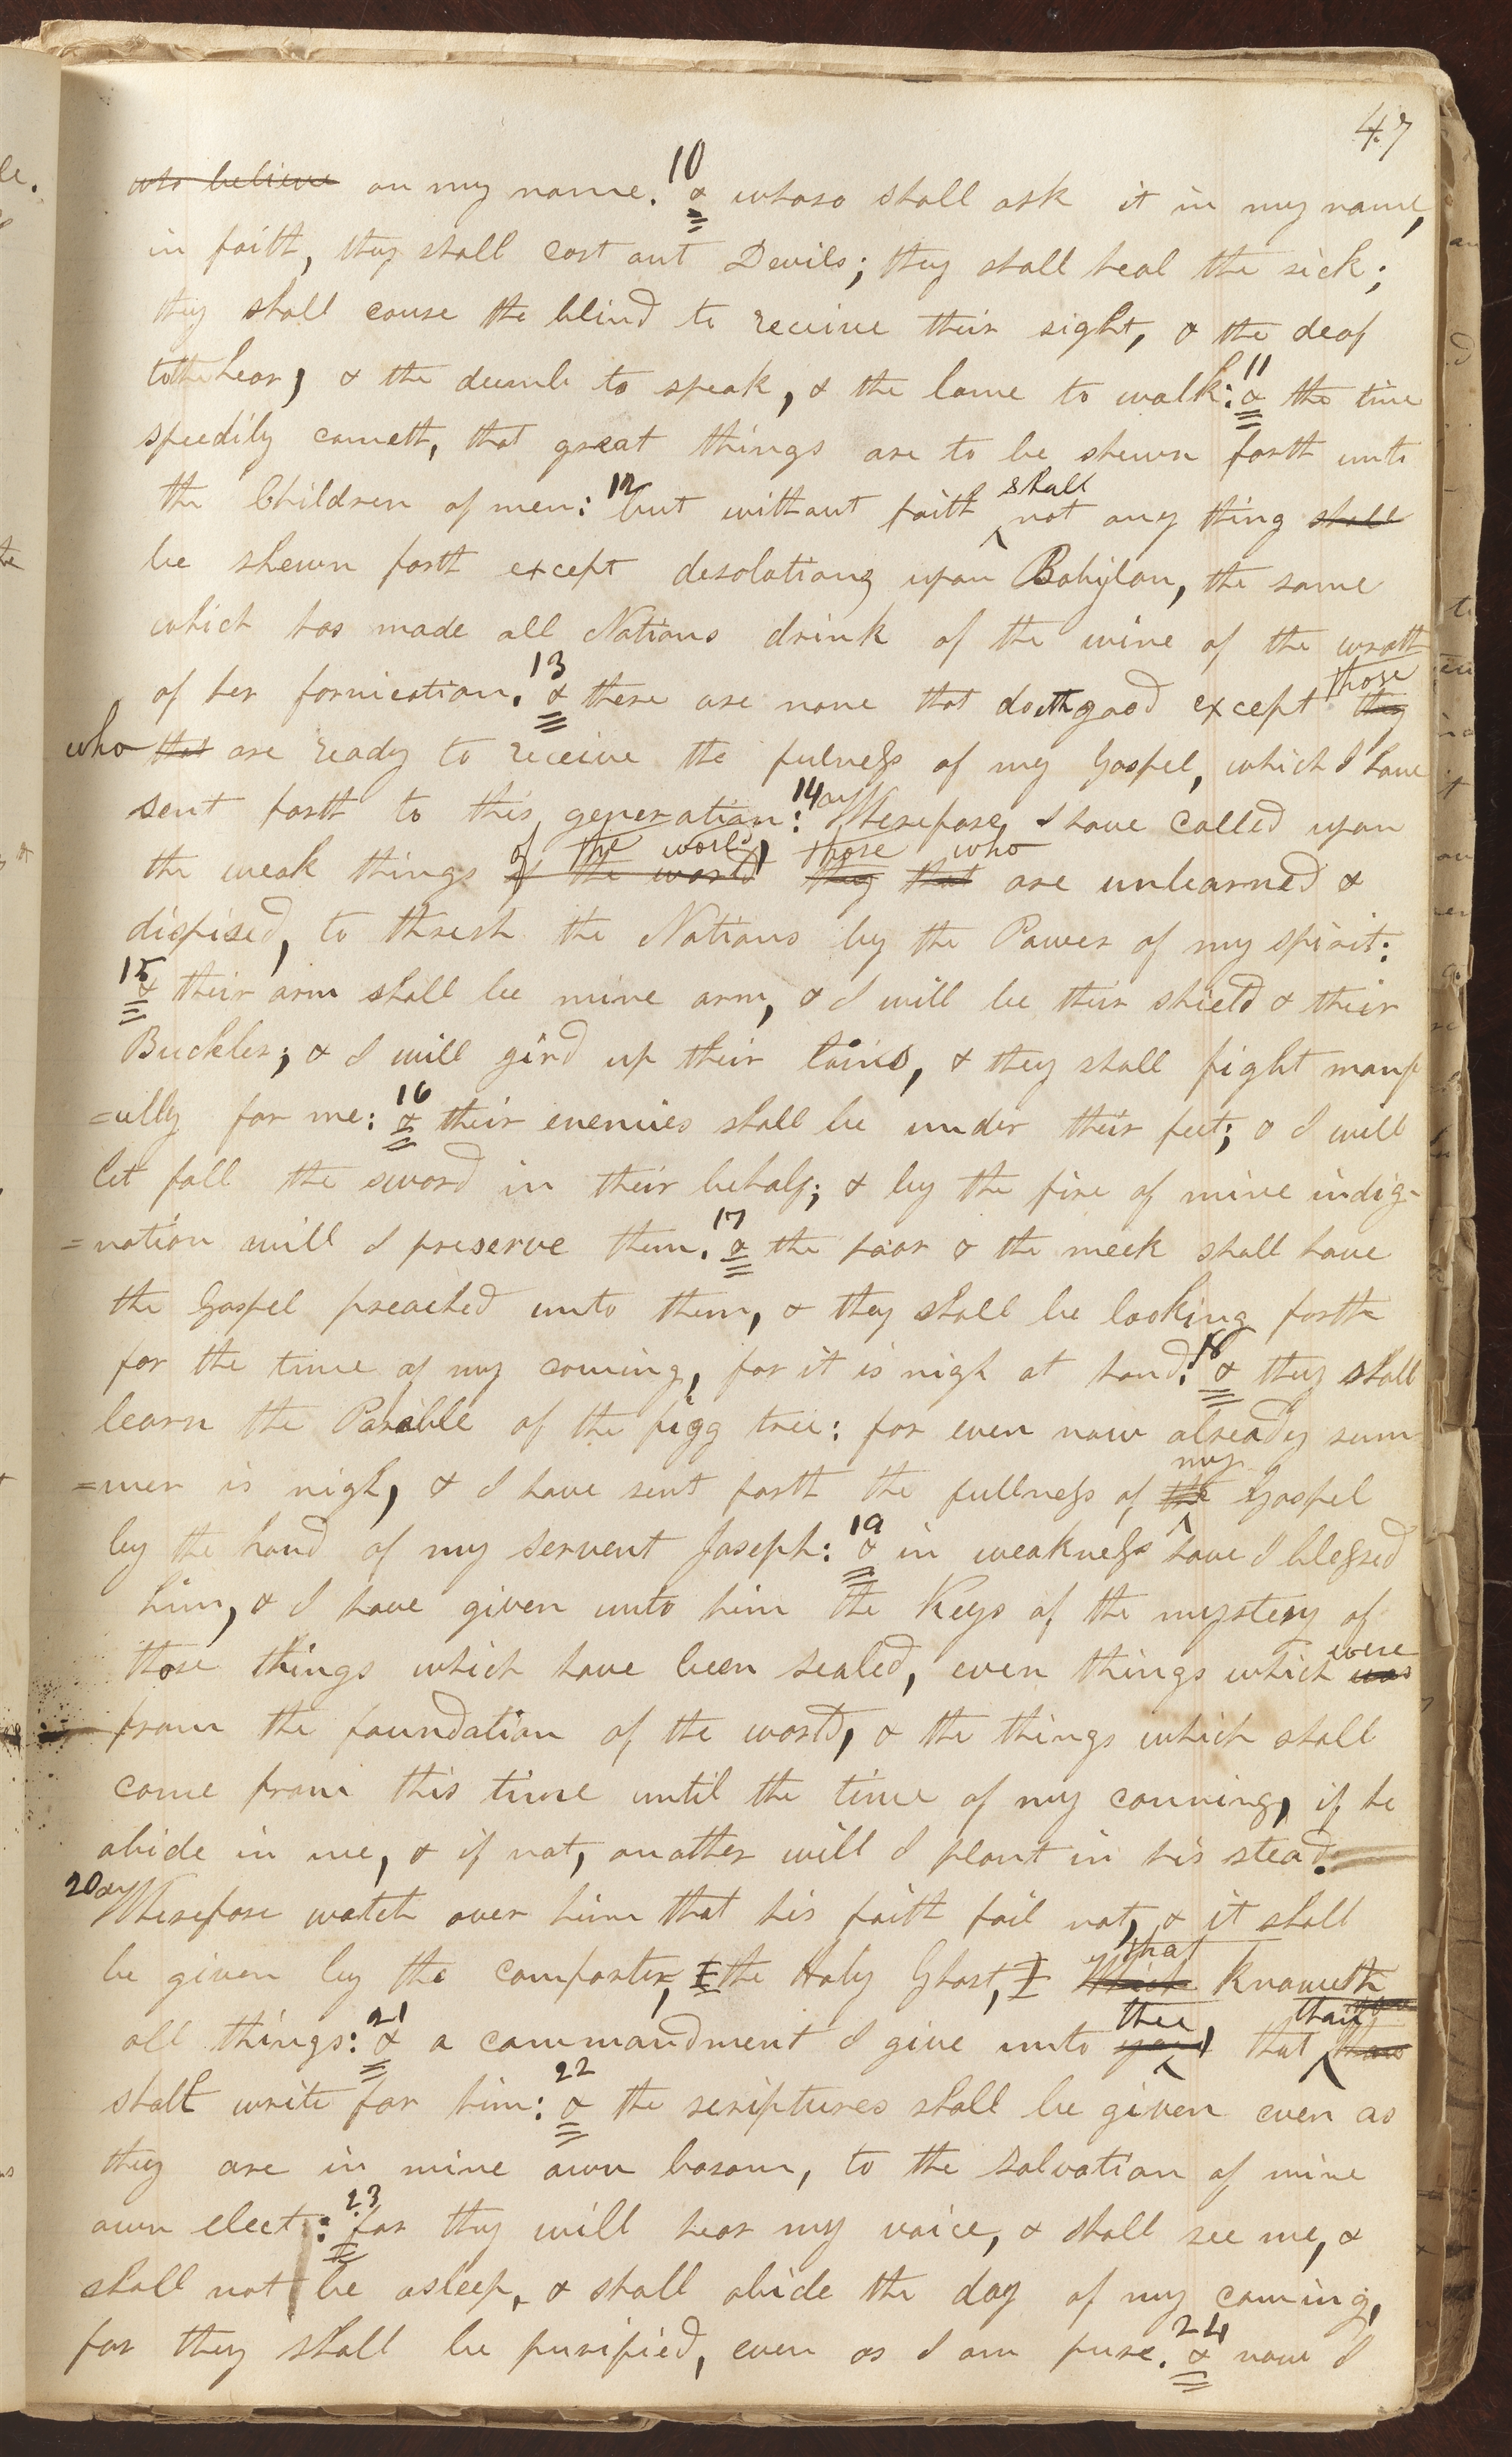 47
who believe on my name. 10 & whoso shall ask it in my name,
in faith, they shall cast out Devils; they shall heal the sick;
they shall cause the blind to receive their sight, & the deaf
to hear, & the dumb to speak, & the lame to walk: 11 & the time
speedily cometh, that great things are to be shewn forth unto
shall
the Children of men: 12 but without faith not any thing shall
be shewn forth except desolations upon Babylon, the same
which has made all Nations drink of the wine of the wrath
those
of her fornication. 13 & there are none that doeth good except they
who that are ready to receive the fulness of my Gospel, which I have
sent forth to this generation: 14 Wherefore, I have called upon
of the world, those who
the weak things of the world they that are unlearned &
dispised, to thresh the Nations by the Power of my spirit:
15 & their arm shall be mine arm, & I will be their shield & their
Buckler; & I will gird up their loins, & they shall fight manf
=ully for me: 16 & their enemies shall be under their feet; & I will
let fall the sword in their behalf; & by the fire of mine indig-
=nation will I preserve them. 17 & the poor & the meek shall have
the Gospel preached unto them, & they shall be looking forth
for the time of my coming, for it is nigh at hand: 18 & they shall
learn the Parable of the figg tree: for even now already sum
my
=mer is nigh, & I have sent forth the fullness of the Gospel
by the hand of my servent Joseph: 19 & in weakness have I blessed
him, & I have given unto him the Keys of the mystery of
were
those things which have been sealed, even things which was
from the foundation of the world, & the things which shall
come from this time until the time of my comming, if he
abide in me, & if not, another will I plant in his stead.
20 Wherefore watch over him that his faith fail not, & it shall
that
be given by the comforter, the Holy Ghost, which knoweth
thee thou
all things: 21 & a commandment I give unto you, that thou
shalt write for him: 22 & the scriptures shall be given even as
they are in mine own bosom, to the salvation of mine
own elect: 23 for they will hear my voice, & shall see me, &
shall not be asleep, & shall abide the day of my coming,
for they shall be purified, even as I am pure. 24 & now I